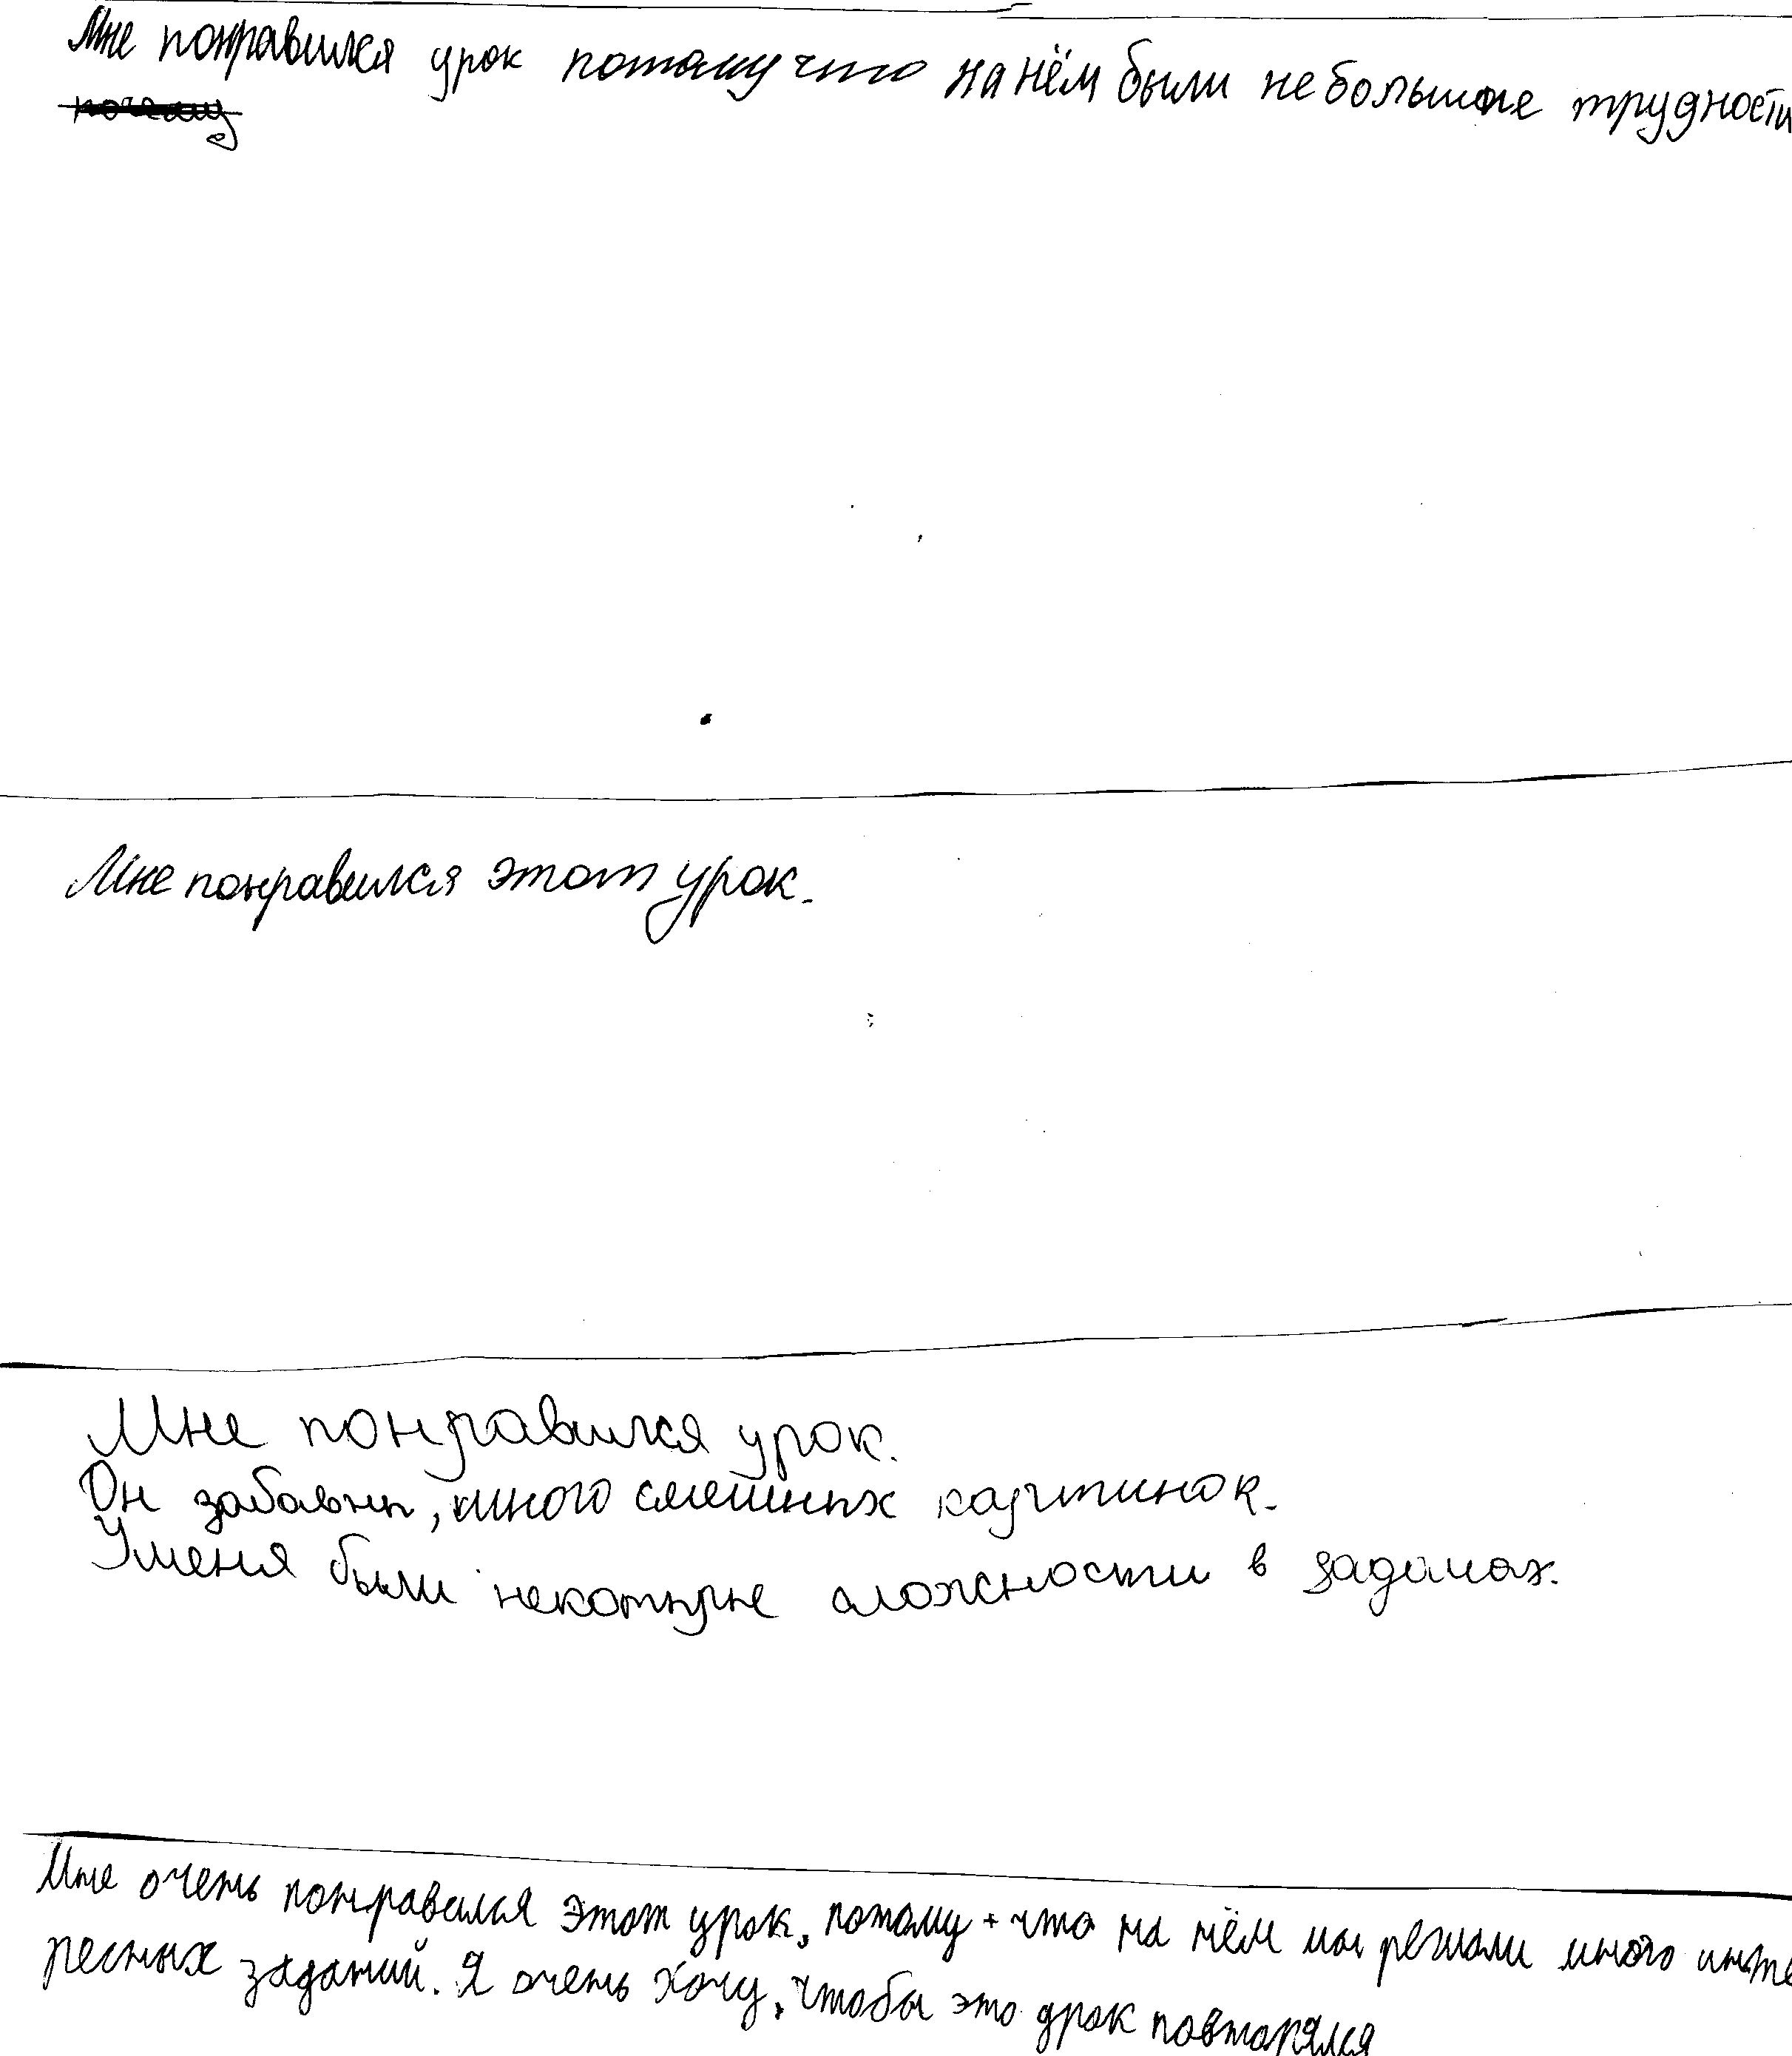 Мне понравился урок потому что на нём были небольшие трудности
почему
Мне понравился этот урок.
Мне понравился урок.
Он забавны, много смешных картинок.
У меня были некоторые сложности в задачах.
Мне очень понравился этот урок, потому-что на нём мы решали много инте
ресных заданий. Я очень хочу, чтобы это урок повторялся